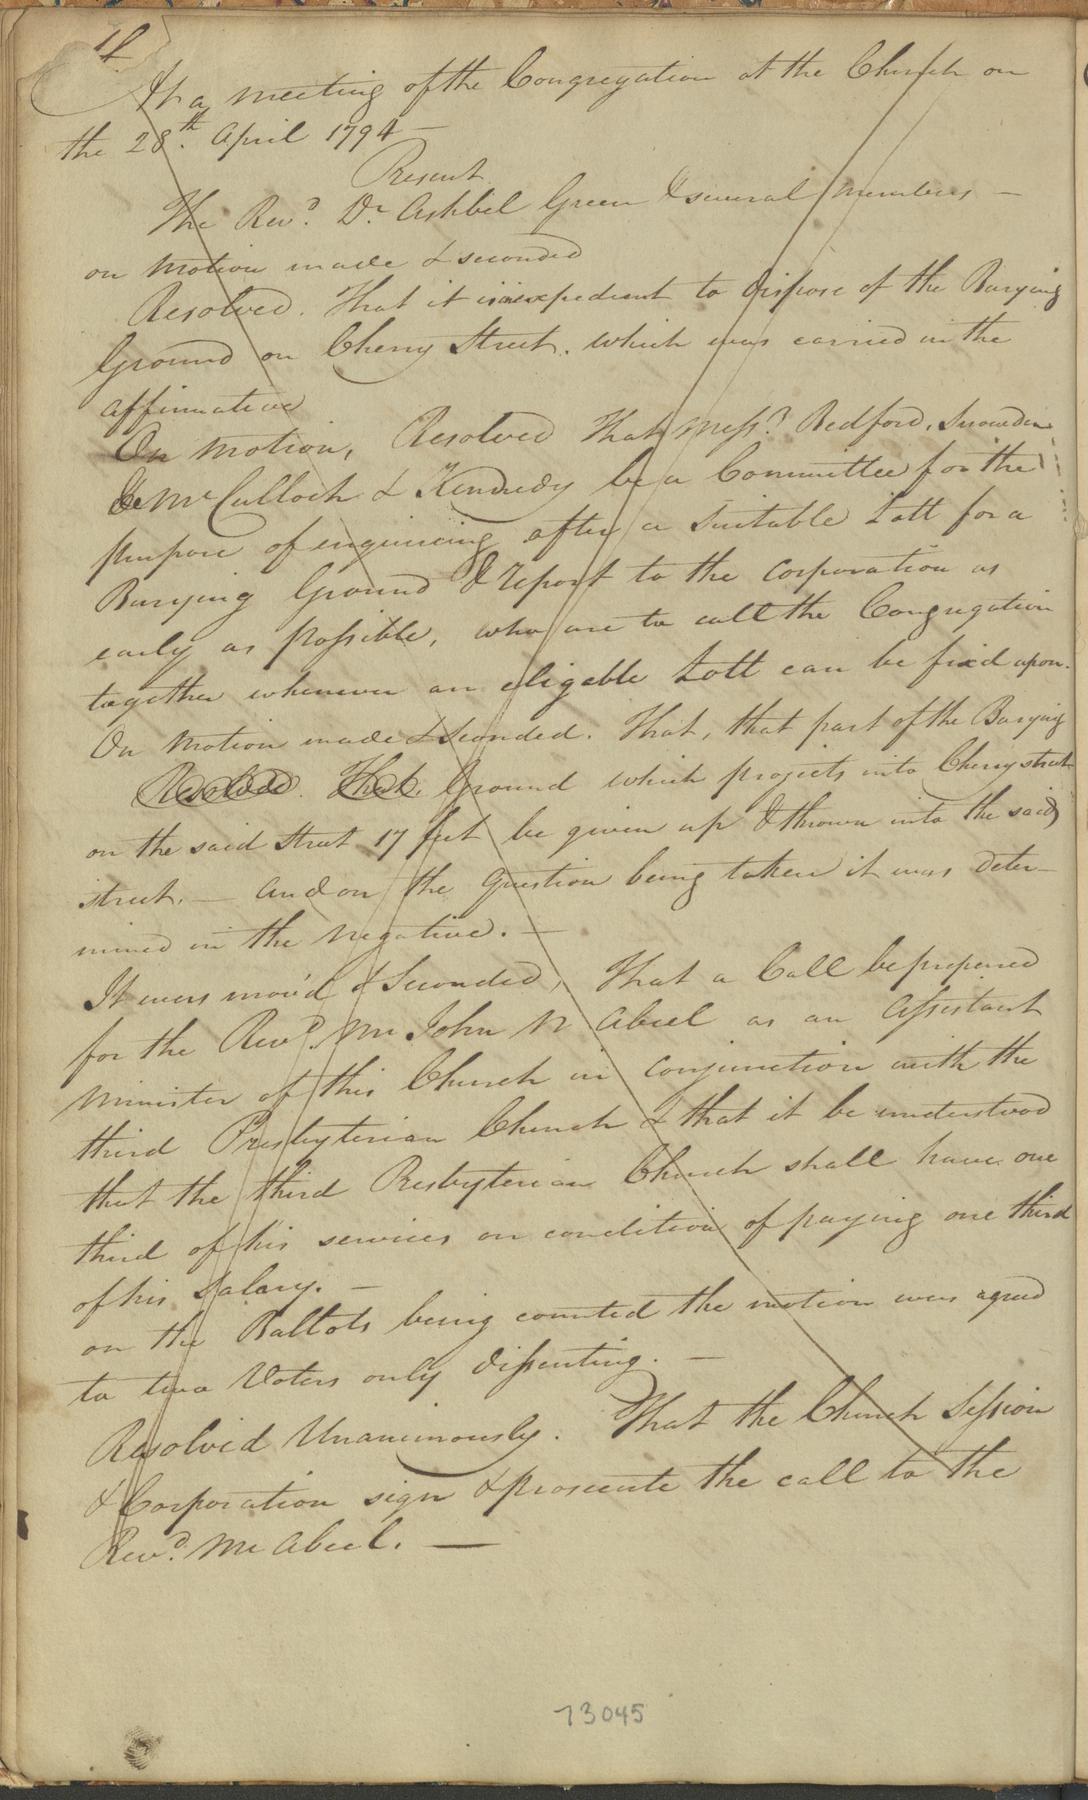 At a meeting of the Congregation at the Church on
the 28th. April 1794 —
Present
The Revd. Dr. Ashbel Green & several members —
on motion made & seconded
Resolved. That it is inexpedient to dispose of the Burying
Ground on Cherry Street. which was carried in the
affirmative
On motion, Resolved That Messrs. Bedford, Snowden
McCulloch & Kennedy be a Committee for the
purpose of enquiring after a suitable Lott for a
Burying Ground & report to the corporation as
early as possible, who are to call the Congregation
together whenever an eligable Lott can be fixd upon.
On motion made & seconded. That, that part of the Burying
Resolved. That Ground which projects into Cherry street
on the said Street 17 feet be given up & thrown into the said
street. — and on the question being taken it was deter-
mined in the negative. —
It was mov'd & Seconded, That a Call be prepared
for the Revd. Mr John N Abeel as an assistant
minister of this Church in conjunction with the
third Presbyterian Church & that it be understood
that the third Presbyterian Church shall have one
third of his services on condition of paying one third
of his Salary. —
on the Ballots being counted the motion was agreed
to two Voters only dissenting. —
Resolved Unanimously. That the Church Session
& Corporation sign & prosecute the call to the
Revd. Mr Abeel. —
73045